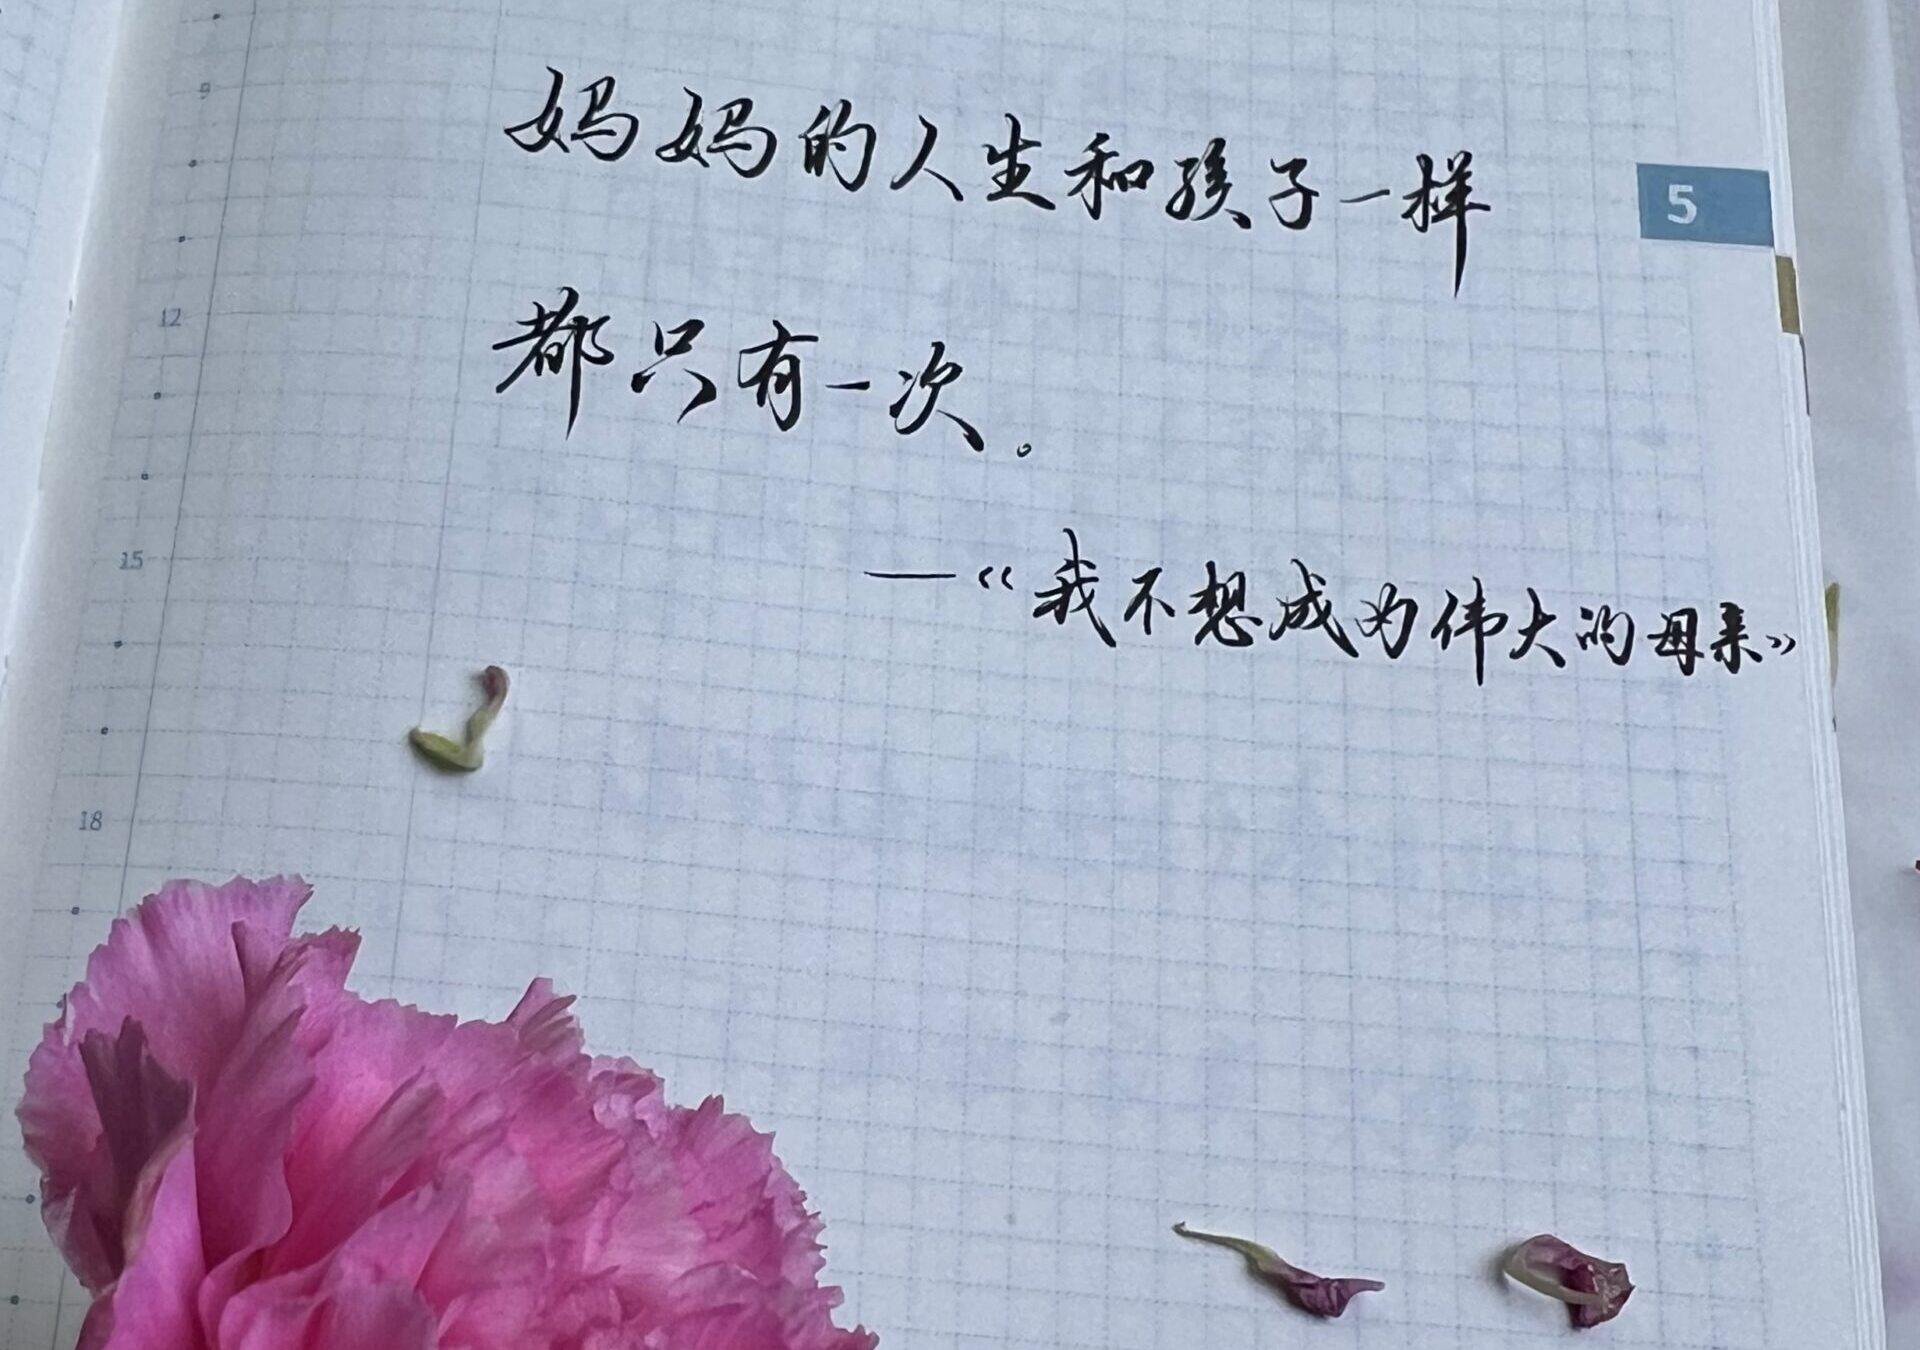 9
妈妈的人生和孩子一样
5
12
都只有一次。
15
—《我不想成为伟大的母亲》
18